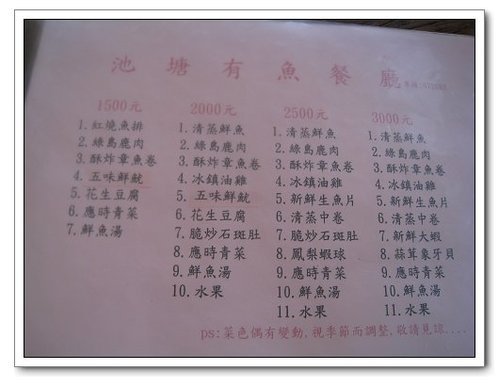 池塘有魚餐廳
1500元
1.紅燒魚排
2.綠島鹿肉
3.酥炸章魚卷
4.五味鮮魷
5.花生豆腐
6.應時青菜
7.鮮魚湯
2000元
1.清蒸鮮魚
2.綠島鹿肉
3.酥炸章魚卷
4.冰鎮油雞
5.五味鮮魷
6.花生豆腐
7.脆炒石斑肚
8.應時青菜
9.鮮魚湯
10.水果
2500元
1.清蒸鮮魚
2.綠島鹿肉
3.酥炸章魚卷
4.冰鎮油雞
5.新鮮生魚片
6.清蒸中卷
7.脆炒石斑肚
8.鳳梨蝦球
9.應時青菜
10.鮮魚湯
11.水果
3000元
1.清蒸鮮魚
2.綠島鹿肉
3.酥炸章魚卷
4.冰鎮油雞
5.新鮮生魚片
6.清蒸中卷
7.新鮮大蝦
8.蒜茸象牙貝
9.應時青菜
10.鮮魚湯
11.水果
ps:菜色偶有變動,視季節而調整,敬請見諒....